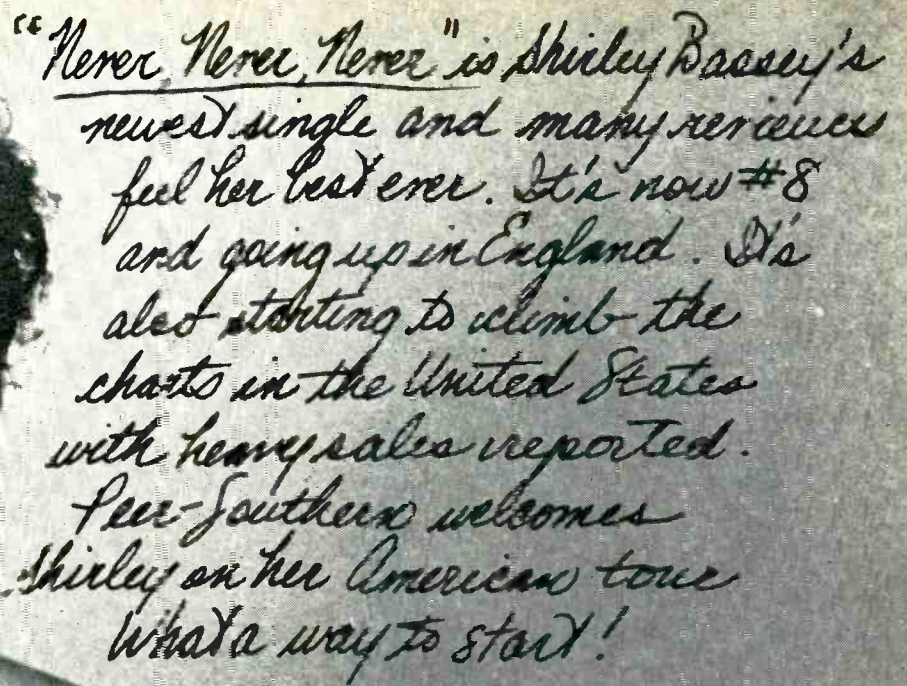 "Never, Never, Never" is Shirley Bassey's
newest single and many reviews
feel her best ever. It's now #8
and going up in England. It's
also starting to climb the
charts in the United States
with heavy sales reported.
Peer-Southern welcomes
Shirley on her American tour
What a way to start!